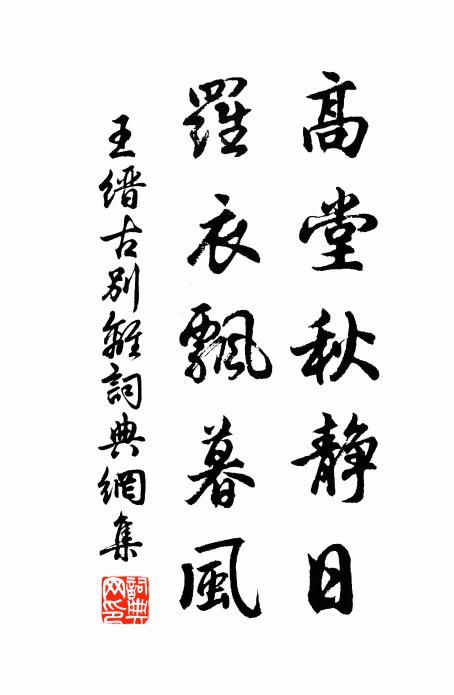 高堂秋静日
羅衣飄暮風
王縉古别離詞典網集
詞典網印